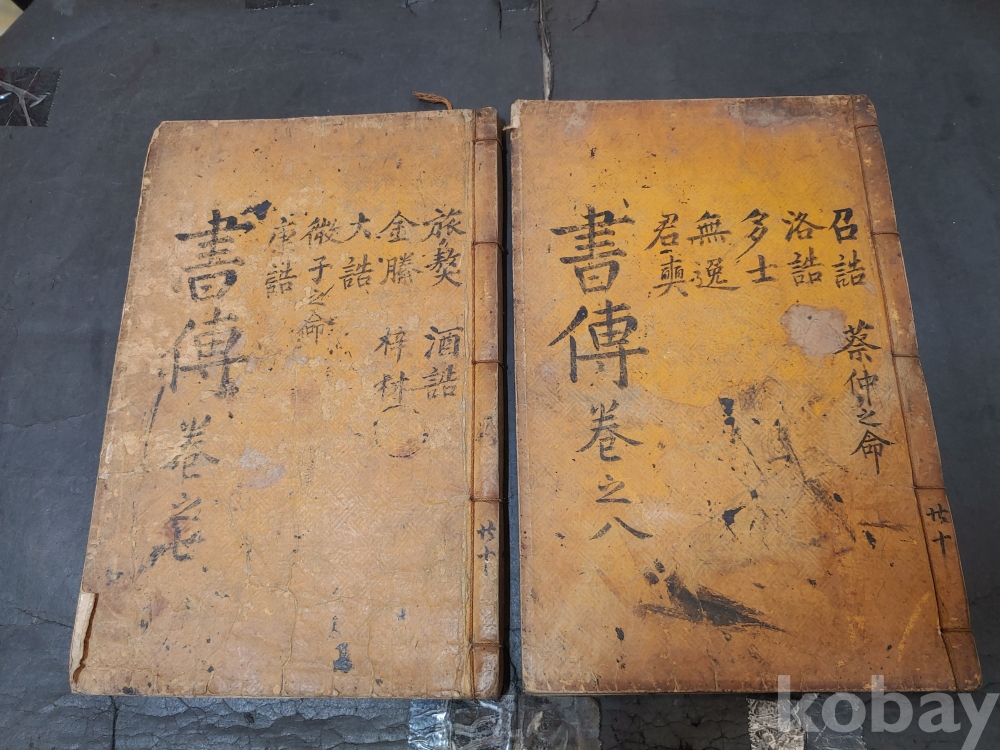 旅獒 酒誥
金縢 梓材
大誥
微子之命
康誥
書傳 卷之七
共十
召誥 蔡仲之命
洛誥
多士
無逸
君奭
書傳 卷之八
共十
kobay